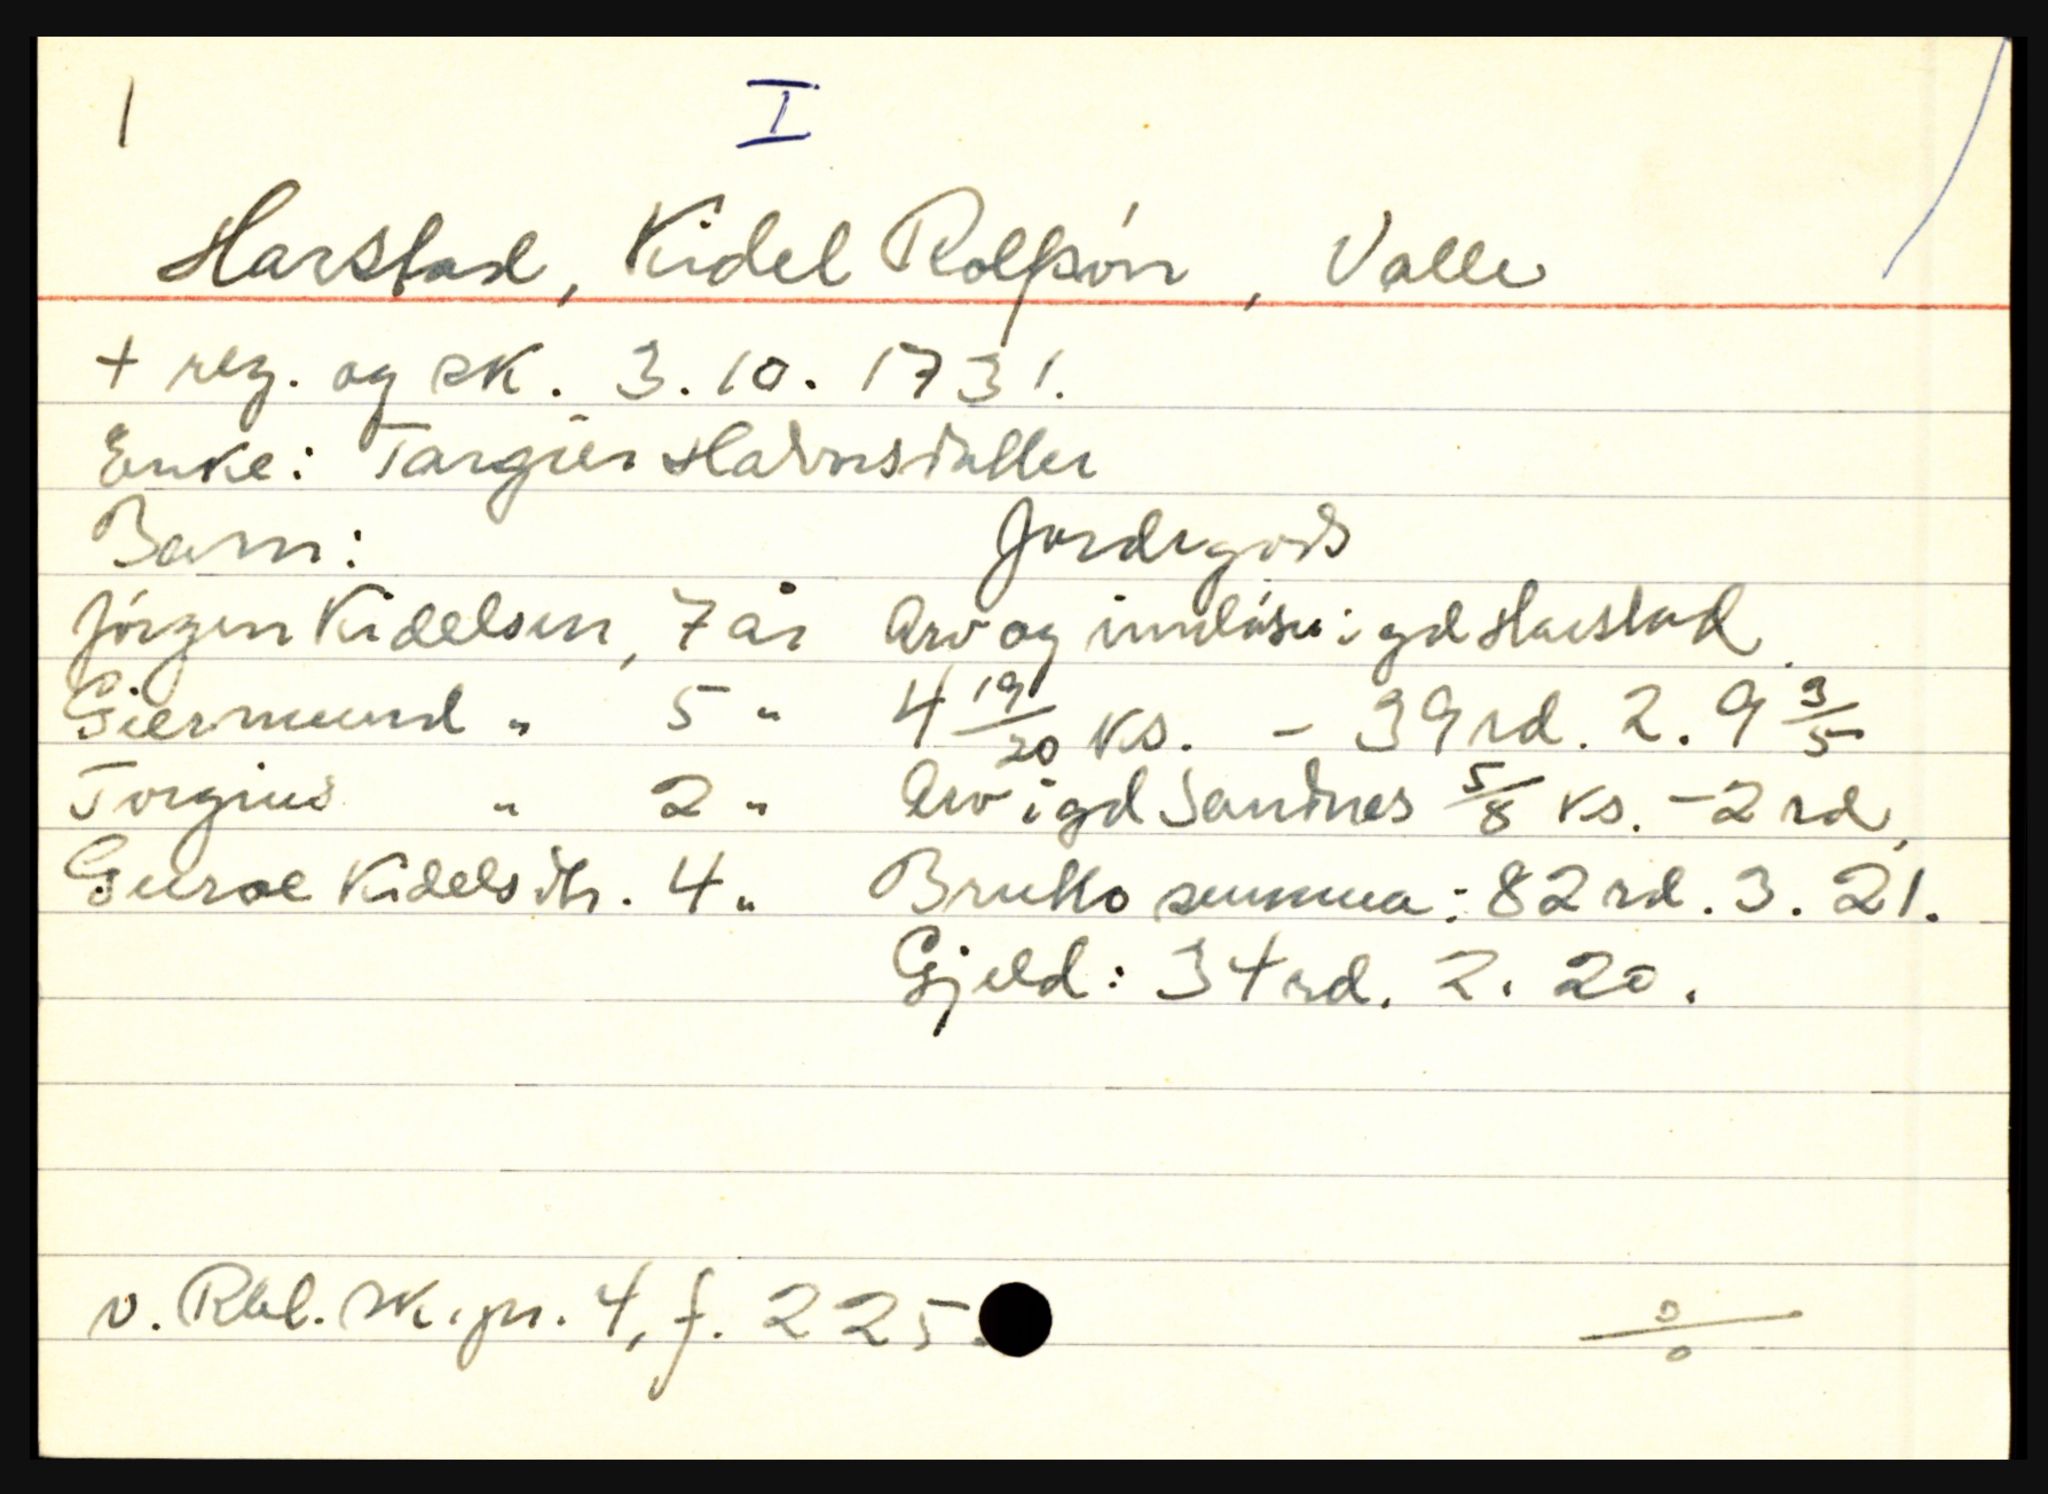 1 I
Harstad, Kidel Rolfsön, Valle
+ reg. og sk. 3.10.1731.
Enke: Targier Halvorsdatter
Barn: Jordegods
Jörgen Kidelsen, 7 år Arv og innlösn i gd Harstad.
Giermund " 5 " 4 19/20 ks. - 39 rd. 2. 9 3/5
Torgius " 2 " Arv i gd Sandnes 5/8 ks. - 2 rd.
Guroe Kidelsdtr. 4 " Brutto summa: 82 rd. 3. 21.
Gjeld: 34 rd. 2. 20.
v. Rbl. sk. pr. 4, f. 225.